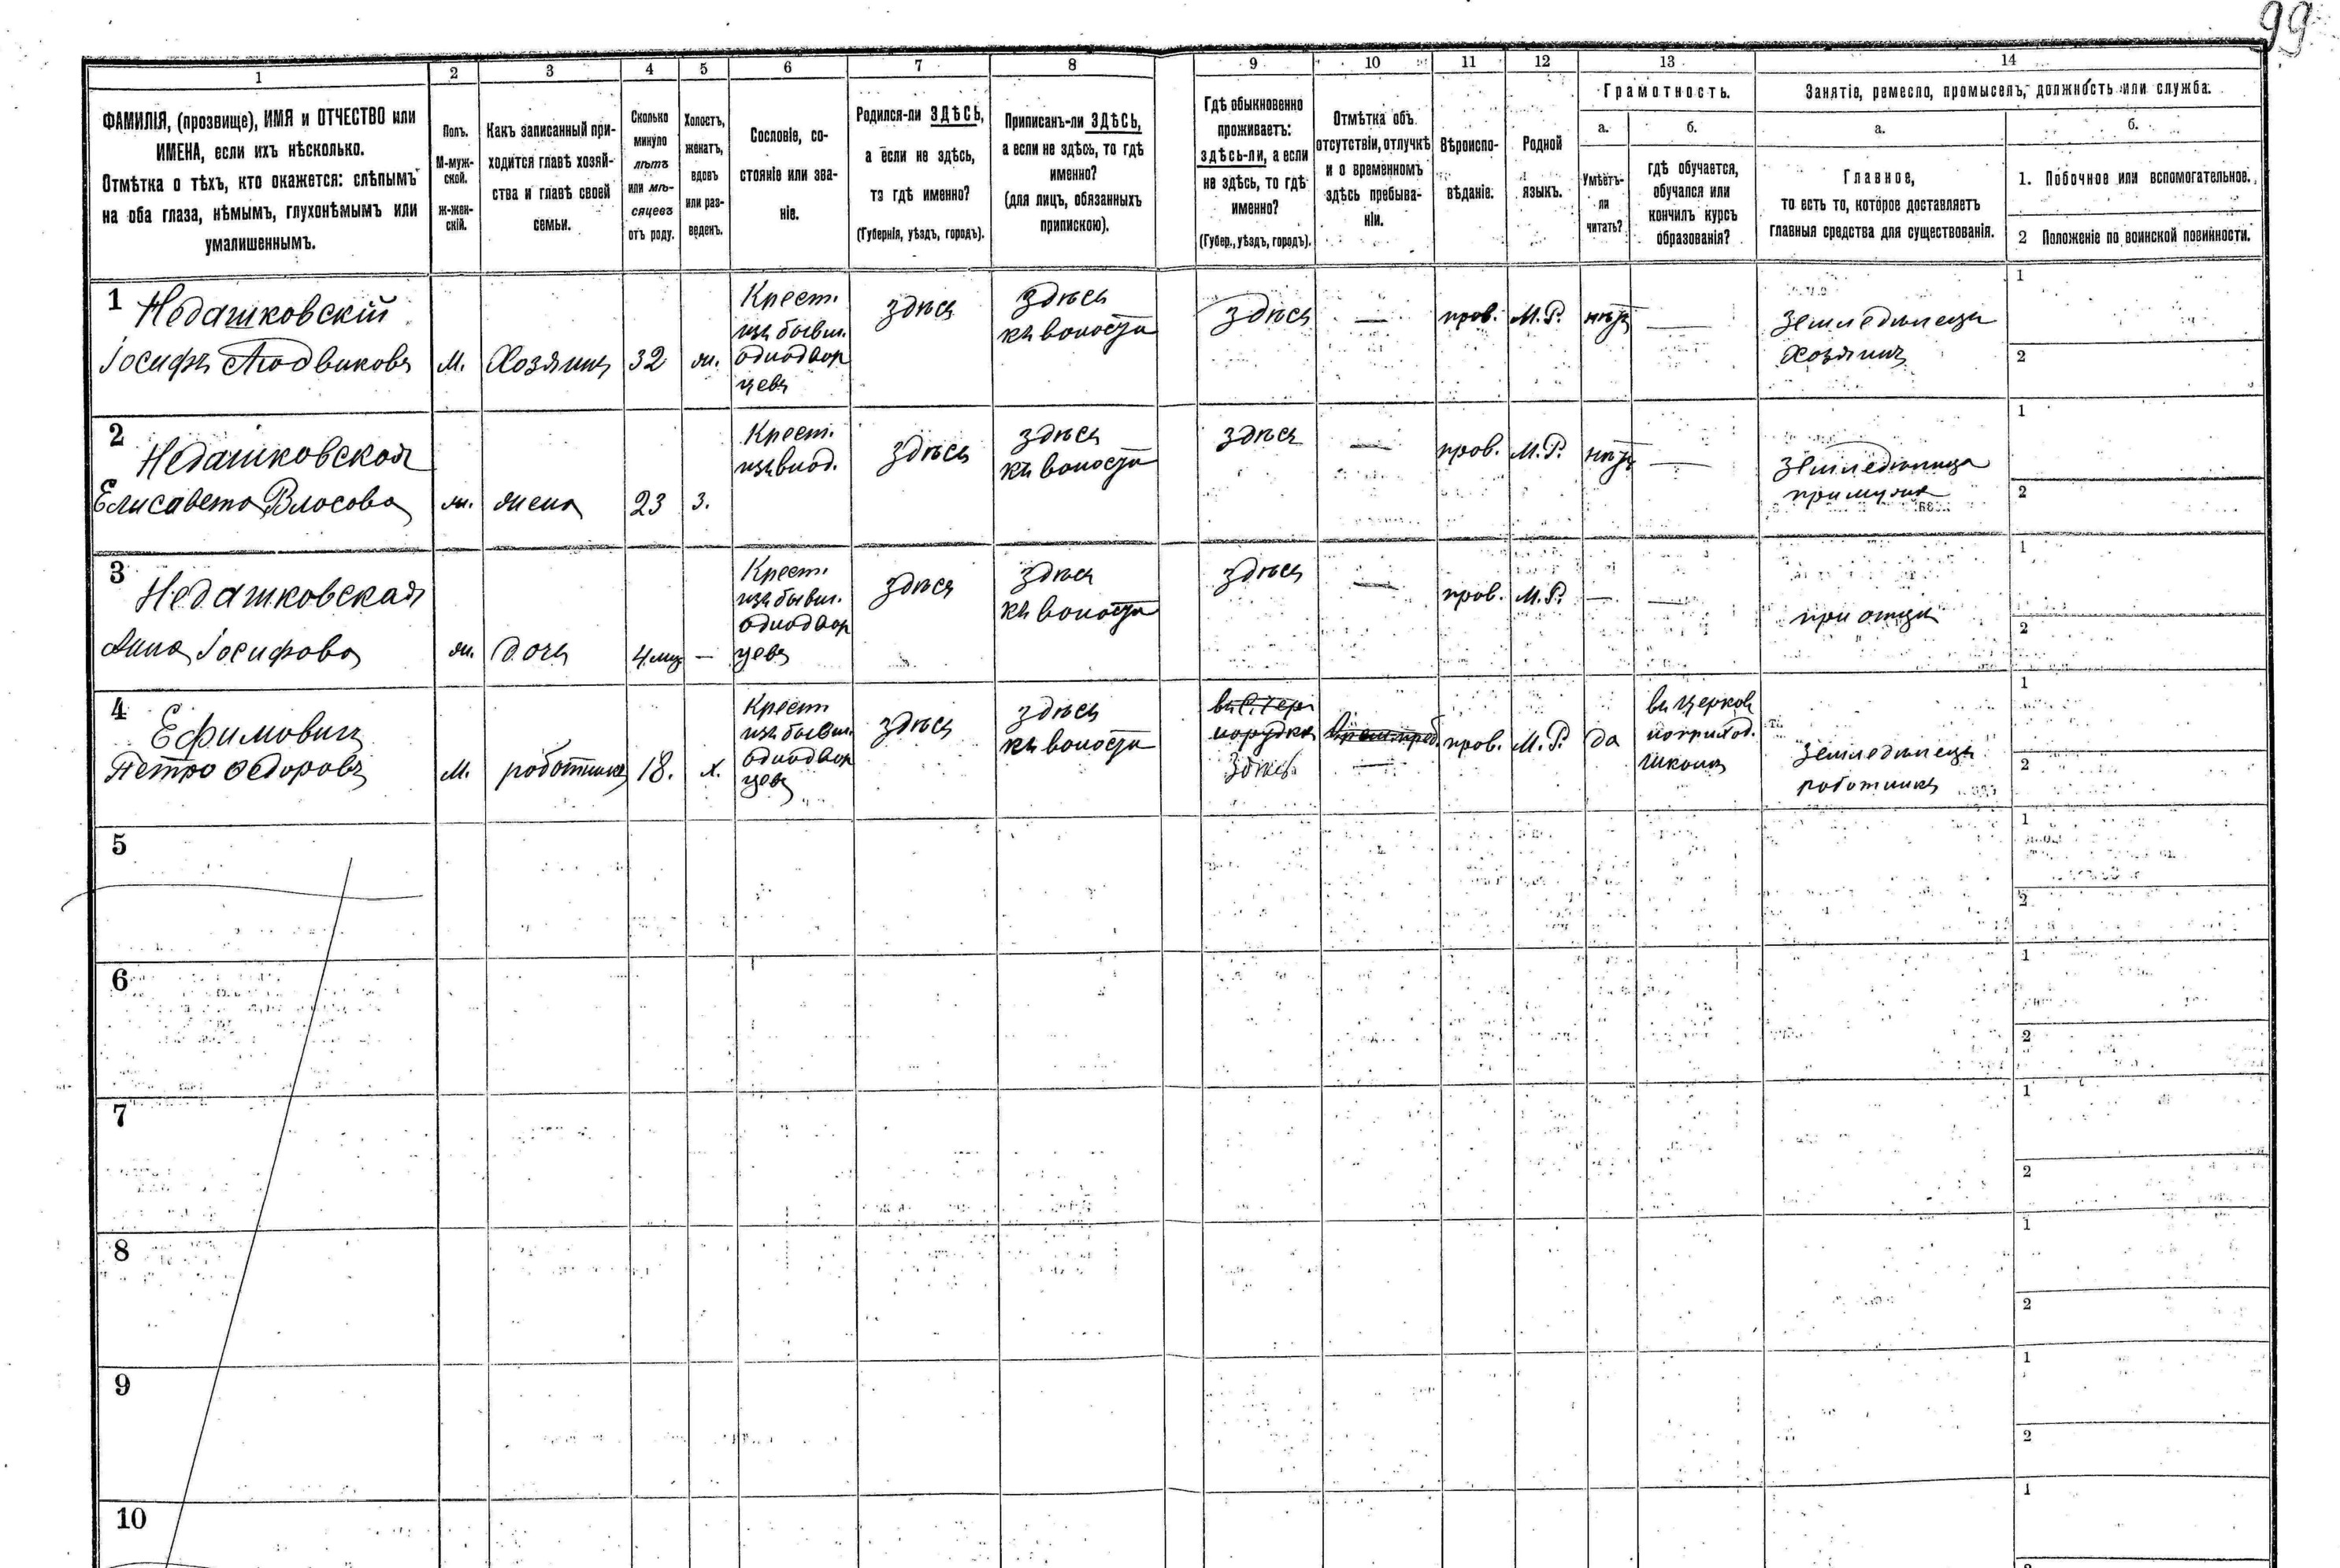 99
1 2 3 4 5 6 7 8 9 10 11 12 13 14
ФАМИЛІЯ, (прозвище), ИМЯ и ОТЧЕСТВО или
ИМЕНА, если ихъ нѣсколько.
Отмѣтка о тѣхъ, кто окажется: слѣпымъ
на оба глаза, нѣмымъ, глухонѣмымъ или
умалишеннымъ.
Полъ.
М-муж-
ской.
ж-жен-
скій.
Какъ записанный при-
ходится главѣ хозяй-
ства и главѣ своей
семьи.
Сколько
минуло
лѣтъ
или мѣ-
сяцевъ
отъ роду.
Холостъ,
женатъ,
вдовъ
или раз-
веденъ.
Сословіе, со-
стояніе или зва-
ніе.
Родился-ли ЗДѢСЬ,
а если не здѣсь,
то гдѣ именно?
(Губернія, уѣздъ, городъ).
Приписанъ-ли ЗДѢСЬ,
а если не здѣсь, то гдѣ
именно?
(для лицъ, обязанныхъ
припискою).
Гдѣ обыкновенно
проживаетъ:
здѣсь-ли, а если
не здѣсь, то гдѣ
именно?
(Губер., уѣздъ, городъ).
Отмѣтка объ
отсутствіи, отлучкѣ
и о временномъ
здѣсь пребыва-
ніи.
Вѣроиспо-
вѣданіе.
Родной
языкъ.
Грамотность.
а.
Умѣетъ-
ли
читать?
б.
гдѣ обучается,
обучался или
кончилъ курсъ
образованія?
Занятіе, ремесло, промыселъ, должность или служба.
а.
Главное,
то есть то, которое доставляетъ
главныя средства для существованія.
б.
1. Побочное или вспомогательное.
2 Положеніе по воинской повинности.
1
Недашковскій
Іосифъ Людвиковъ
М.
Хозяинъ
32
ж.
Крест.
изъ бывш.
однодвор
цевъ
здѣсь
здѣсь
къ волости
здѣсь
—
прав.
М.Р.
нѣтъ
—
Земледѣлецъ
Хозяинъ
1
2
2
Недашковская
Елисавета Власова
ж.
жена
23
з.
Крест.
изъ влад.
здѣсь
здѣсь
къ волости
здѣсь
—
прав.
М.Р.
нѣтъ
—
Земледѣлица
при мужѣ
1
2
3
Недашковская
Анна Іосифова
ж.
дочь
4 мц
—
Крест.
изъ бывш.
однодвор
цевъ
здѣсь
здѣсь
къ волости
здѣсь
—
прав.
М.Р.
—
—
при отцѣ
1
2
4
Ефимовичъ
Петро Ѳедоровъ
М.
работникъ
18.
х.
Крест
изъ бывш.
однодвор
цевъ
здѣсь
здѣсь
къ волости
здѣсь
—
прав.
М.Р.
да
въ церков
приход.
школѣ
Земледѣлецъ
работникъ
1
2
5
1
2
6
1
2
7
1
2
8
1
2
9
1
2
10
1